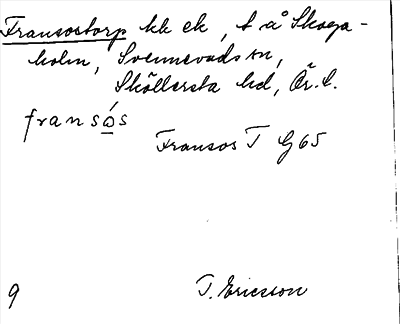 Fransostorp kk ek, t å Skoga-
holm, Svennevads sn,
Sköllersta hd, Ör. l.
fransòs
Fransos T G65
9
T. Ericsson